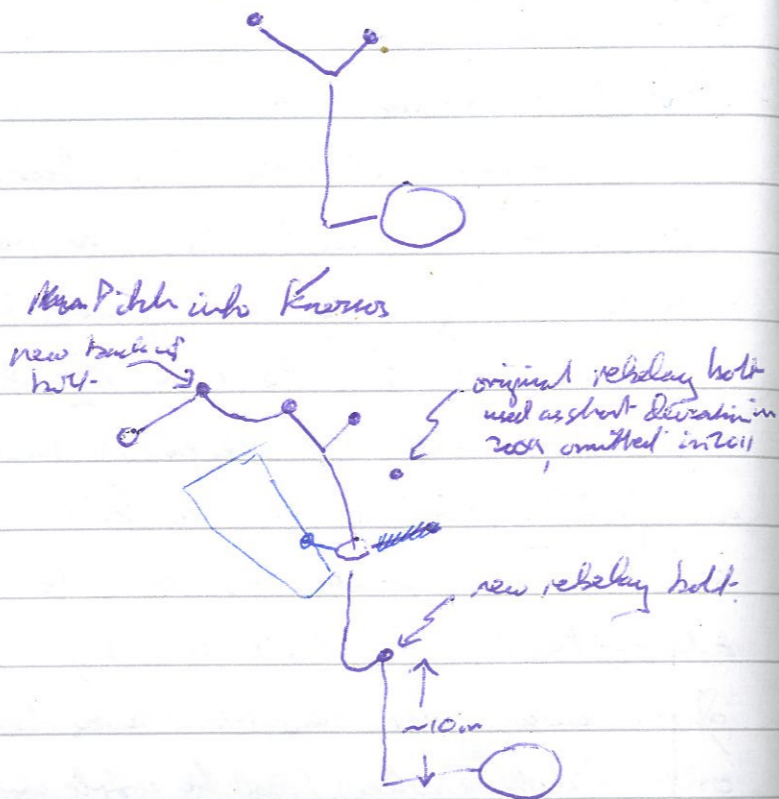 Pitch into Knossos
new backup
bolt
original rebelay bolt
used as short deviation in
2009, omitted in 2011
new rebelay bolt
~10m